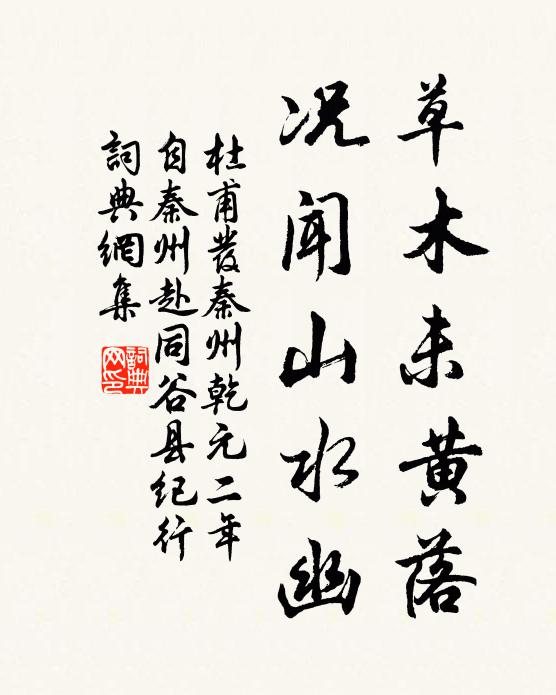 草木未黄落
况闻山水幽
杜甫發秦州乾元二年
自秦州赴同谷县纪行
詞典網集
詞典网印